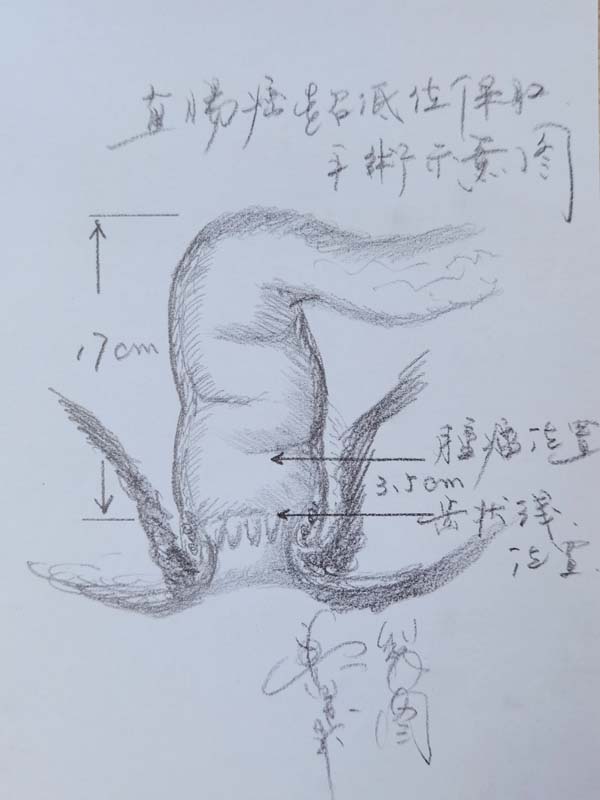 直腸癌超低位保肛
手術示意图
17cm
腫瘤位置
3.5cm
齿状线
位置